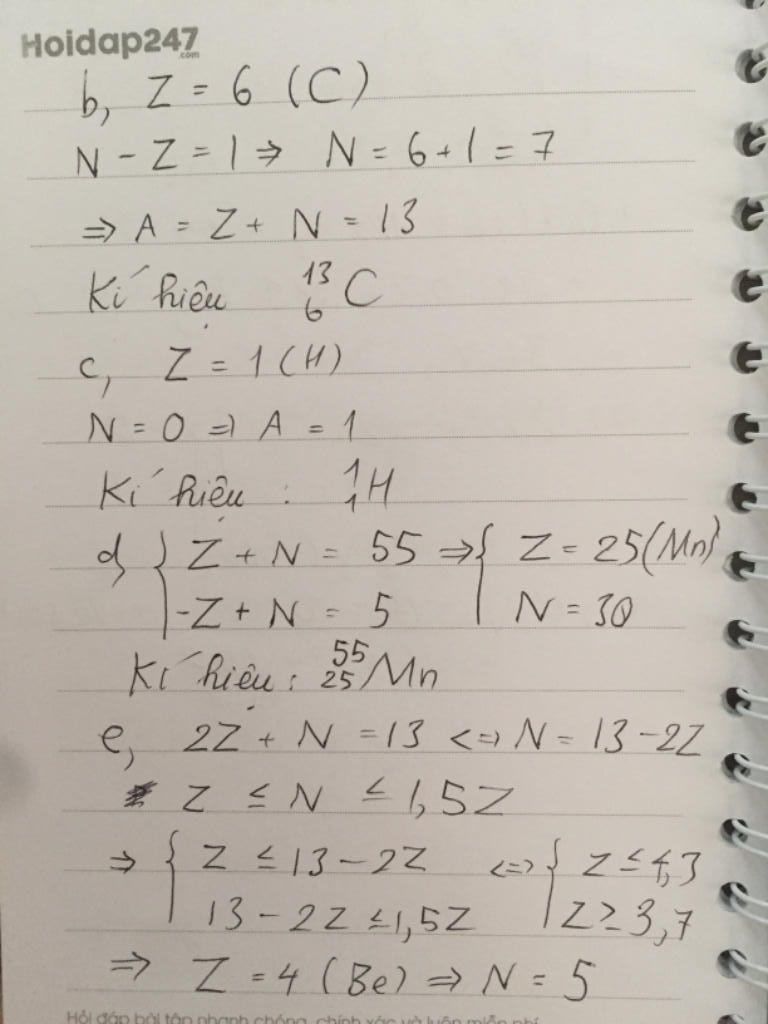 Hoidap247
.com
b, Z = 6 (C)
N - Z = 1 => N = 6 + 1 = 7
=> A = Z + N = 13
Kí hiệu ¹³₆C
c, Z = 1 (H)
N = 0 => A = 1
Kí hiệu : ¹₁H
d, { Z + N = 55 => { Z = 25 (Mn)
-Z + N = 5 N = 30
Kí hiệu : ⁵⁵₂₅Mn
e, 2Z + N = 13 <=> N = 13 - 2Z
Z ≤ N ≤ 1,5Z
=> { Z ≤ 13 - 2Z <=> { Z ≤ 4,3
13 - 2Z ≤ 1,5Z Z ≥ 3,7
=> Z = 4 (Be) => N = 5
Hỏi đáp bài tập nhanh chóng, chính xác và luôn miễn phí